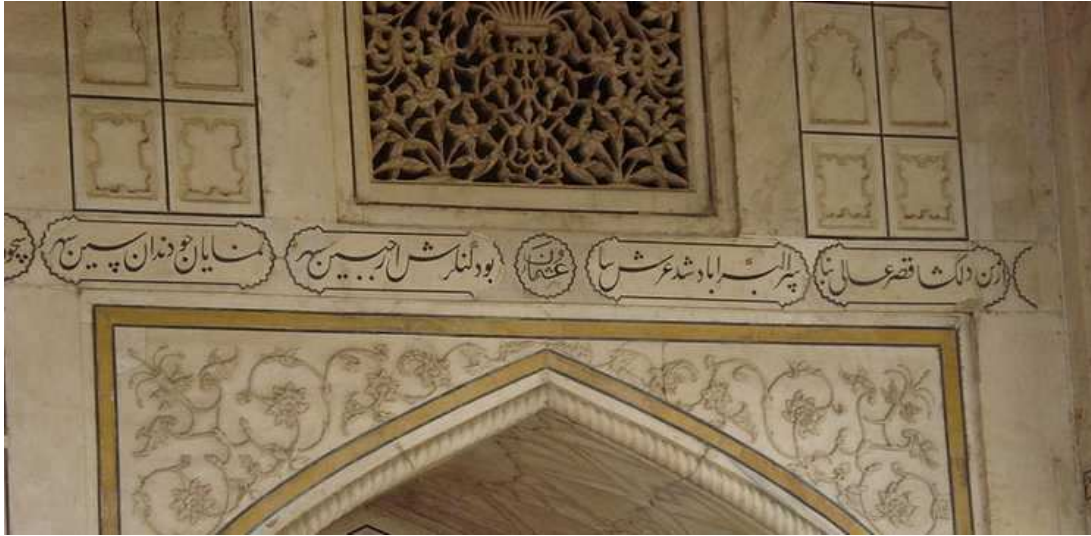 ازین دلکشا قصر عالی بنا
سر اکبراباد شد عرش سا
عثمان
بود کنگرش از جبین سپهر
نمایان چو دندان سین سپهر
سجود